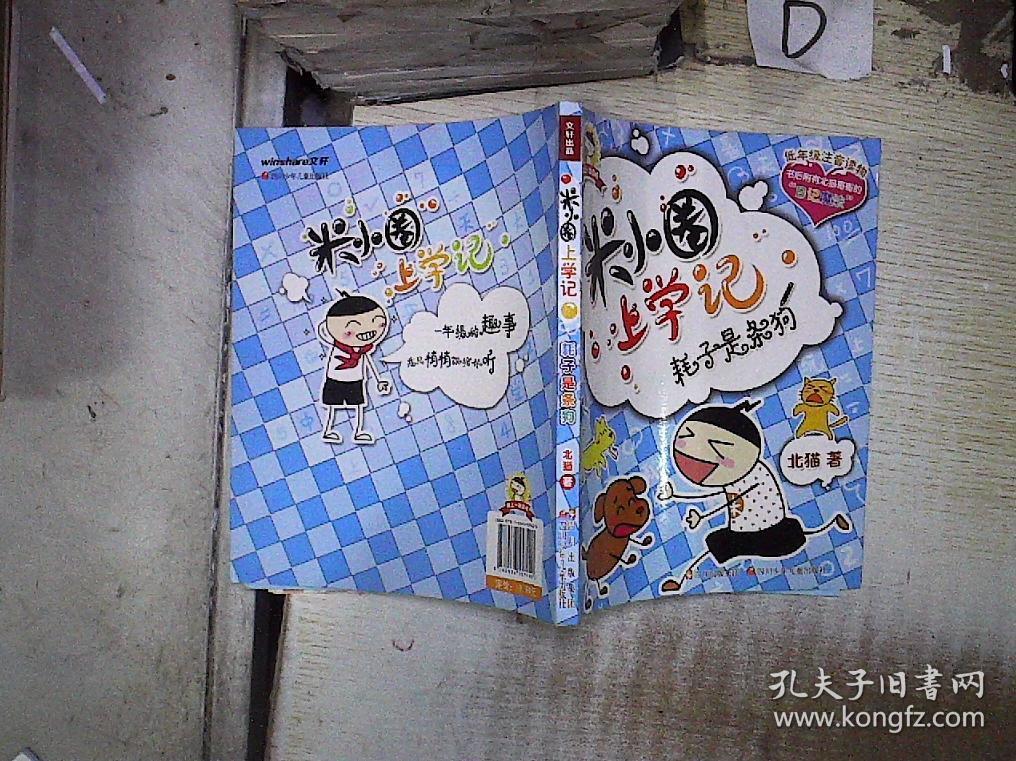 D
winshare文轩
四川少年儿童出版社
米小圈
上学记
一年级的趣事
我只悄悄讲给你听
文轩出品
米小圈上学记
耗子是条狗
北猫 著
低年级注音读物
书后附有北猫哥哥的
米小圈
上学记
耗子是条狗
北猫 著
四川少年儿童出版社
孔夫子旧書网
www.kongfz.com